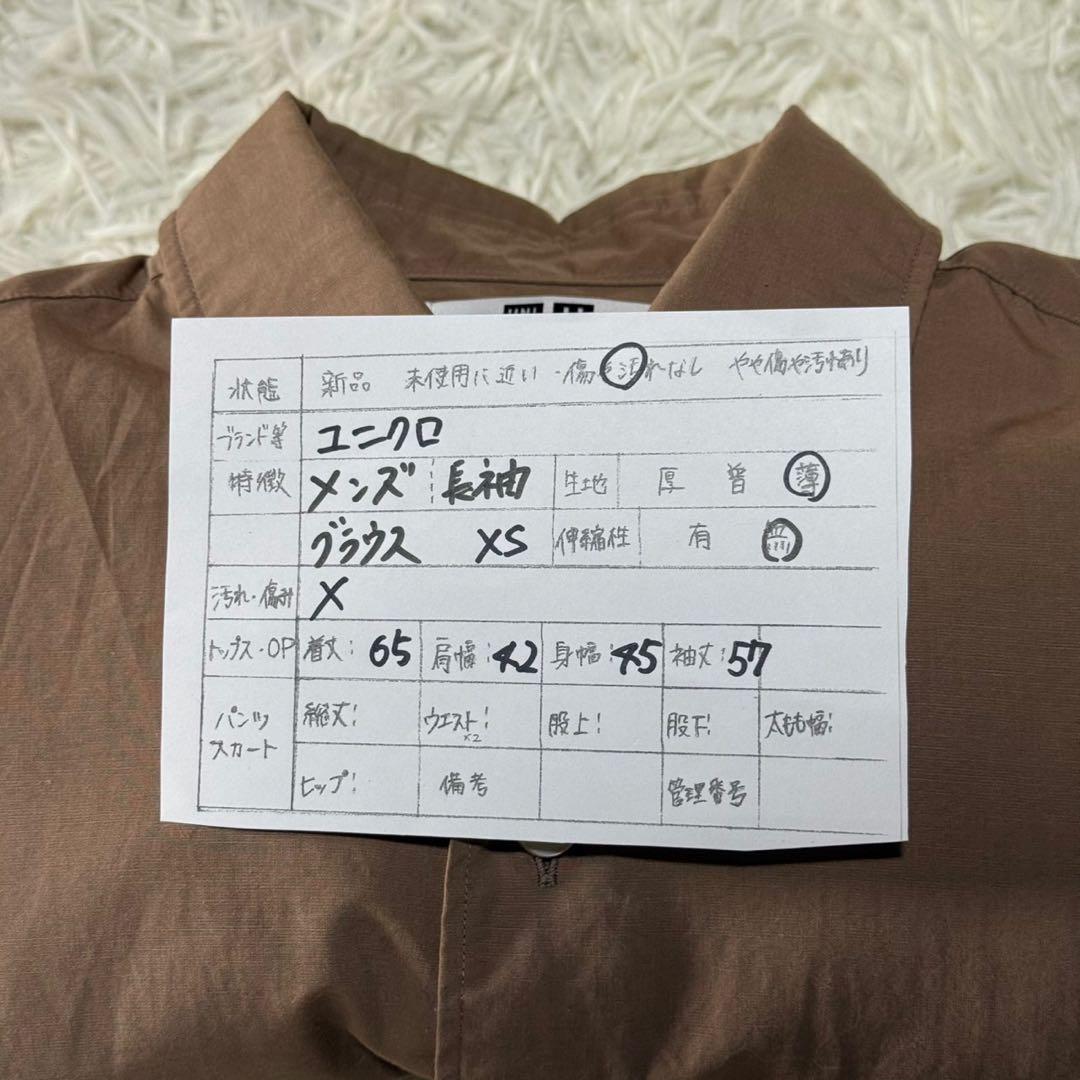 状態 新品 未使用に近い ・傷や汚れなし やや傷や汚れあり
ブランド等 ユニクロ
特徴 メンズ 長袖 生地 厚 普 薄
ブラウス XS 伸縮性 有 無
汚れ・傷み X
トップス・OP 着丈: 65 肩幅: 42 身幅: 45 袖丈: 57
パンツ スカート 総丈: ウエスト: ×2 股上: 股下: 太もも幅:
ヒップ: 備考 管理番号